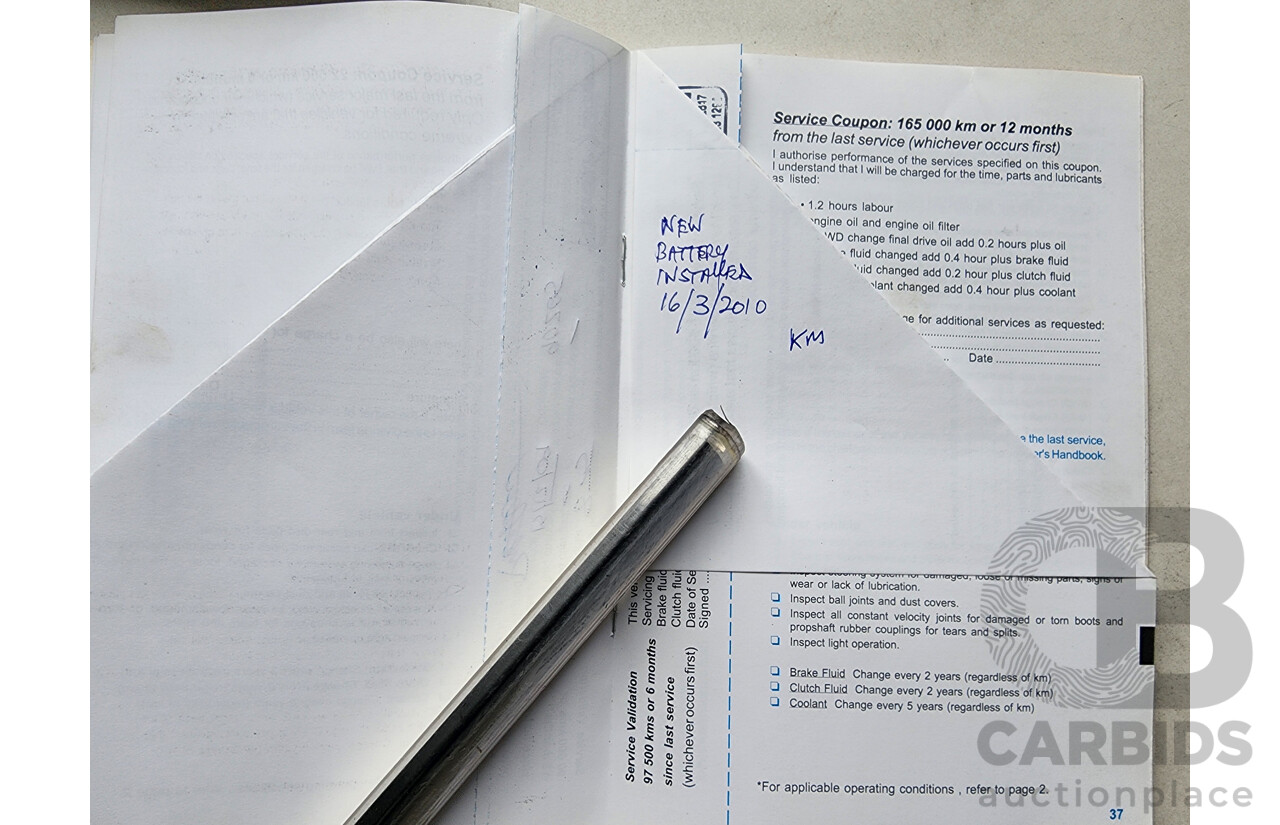 Service Coupon: 165 000 km or 12 months
from the last service (whichever occurs first)
I authorise performance of the services specified on this coupon.
I understand that I will be charged for the time, parts and lubricants
as listed:
• 1.2 hours labour
engine oil and engine oil filter
WD change final drive oil add 0.2 hours plus oil
fluid changed add 0.4 hour plus brake fluid
uid changed add 0.2 hour plus clutch fluid
olant changed add 0.4 hour plus coolant
ge for additional services as requested:
Date
e the last service,
er's Handbook.
NEW
BATTERY
INSTALLED
16/3/2010
KM
wear or lack of lubrication.
Inspect ball joints and dust covers.
Inspect all constant velocity joints for damaged or torn boots and
propshaft rubber couplings for tears and splits.
Inspect light operation.
Brake Fluid Change every 2 years (regardless of km)
Clutch Fluid Change every 2 years (regardless of km)
Coolant Change every 5 years (regardless of km)
*For applicable operating conditions , refer to page 2.
37
Service Validation
97 500 kms or 6 months
since last service
(whichever occurs first)
This ve
Servicing
Brake fluid
Clutch fluid
Date of Se
Signed
CB
CARBIDS
auctionplace